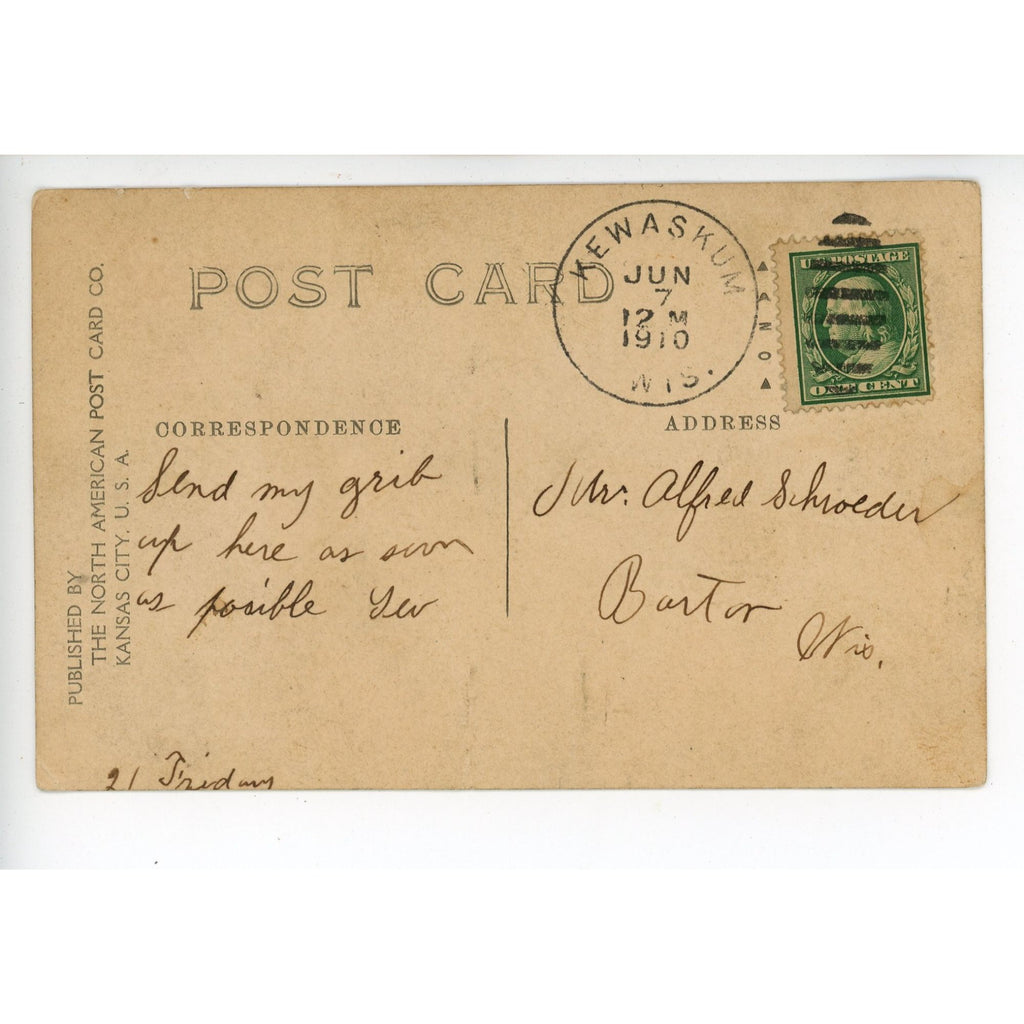 PUBLISHED BY
THE NORTH AMERICAN POST CARD CO.
KANSAS CITY, U. S. A.
POST CARD
KEWASKUM
JUN
7
12 M
1910
WIS.
U.S. POSTAGE
ONE CENT
CORRESPONDENCE
Send my grib
up here as soon
as posible
ADDRESS
Mr. Alfred Schroeder
Barton
Wis.
21 Friday